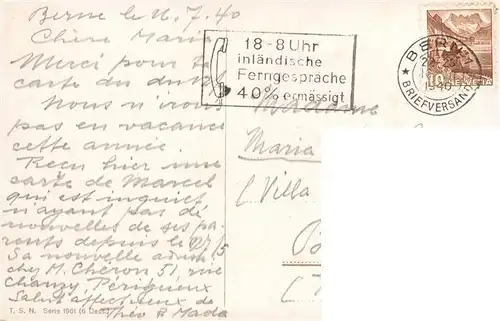 Berne le 11.7.40
Chère Maria
Merci pour ta
carte du
Nous n'irons
pas en vacance
cette année.
Reçu hier une
carte de Marcel
qui est inquiet
n'ayant pas de
nouvelles de ses pa-
rents depuis le
Sa nouvelle
chez M. Chéron 51, rue
Chanzy, Périgueux
Salut affectueux de
Théo & Mada
T. S. N. Série 1901 (6 Dess.)
18-8 Uhr
inländische
Ferngespräche
40% ermässigt
BERN
1940
BRIEFVERSAND
10 HELVETIA
Madame
Maria
(Villa